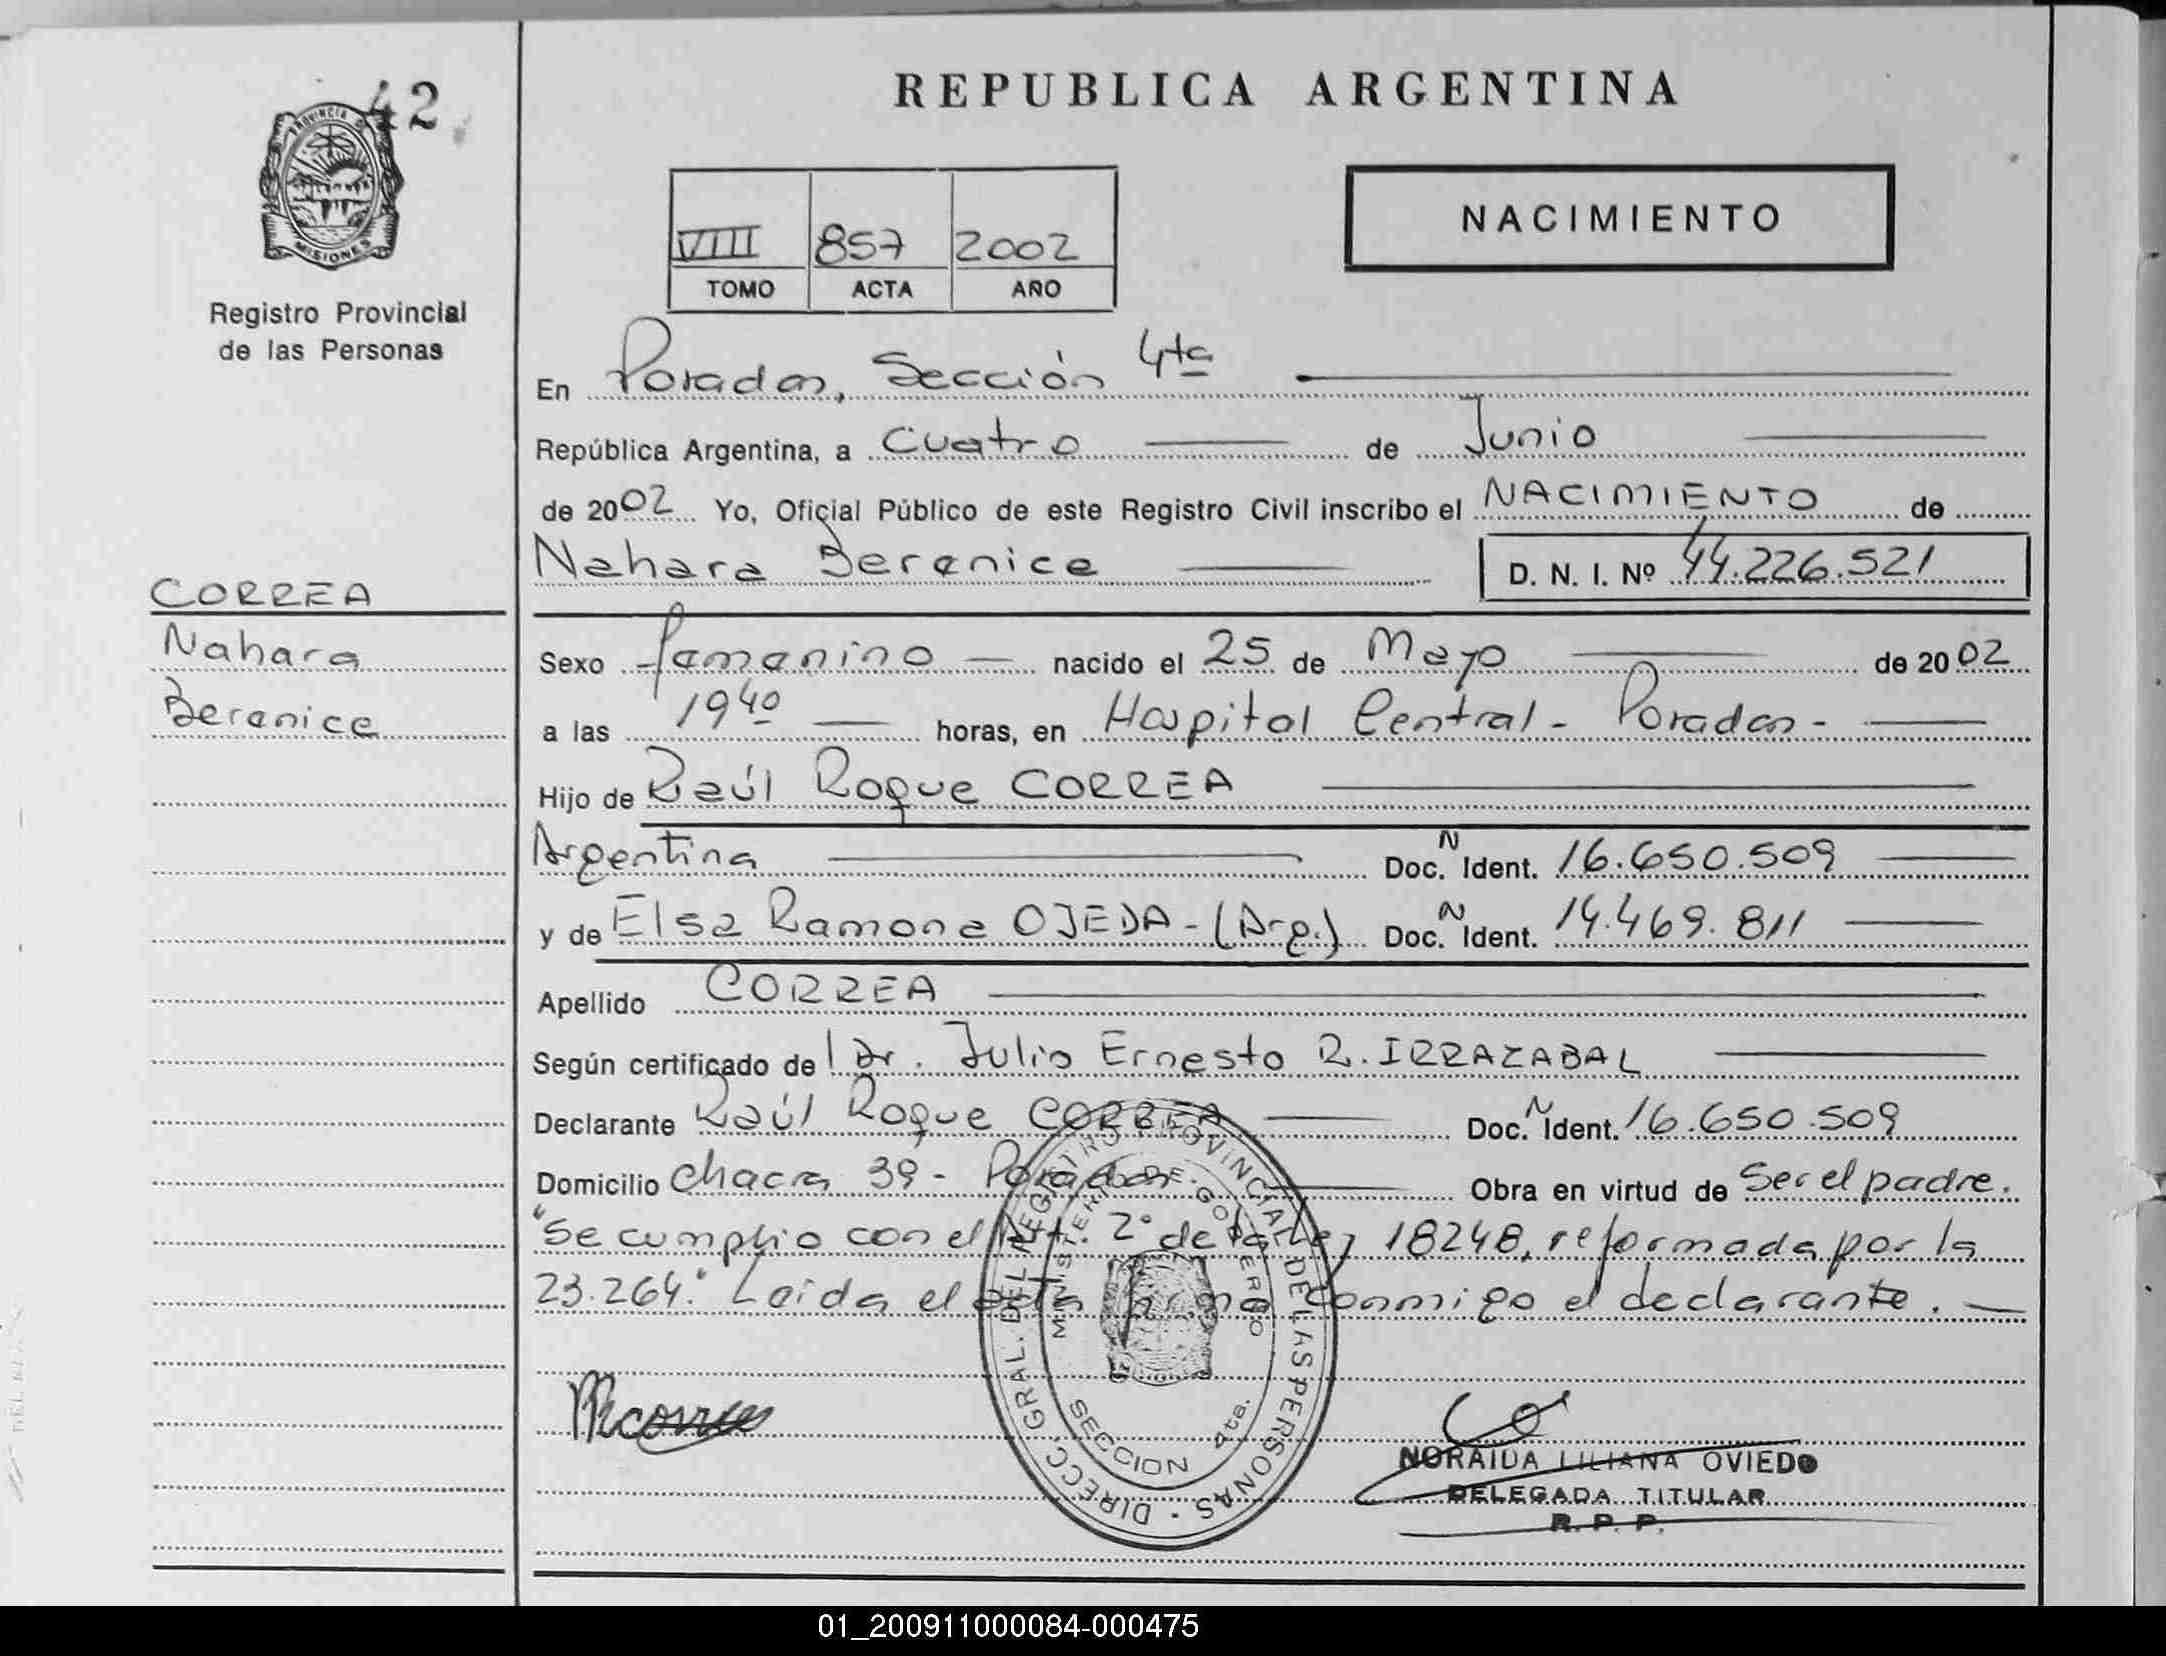 42
PROVINCIA DE
MISIONES
Registro Provincial
de las Personas
CORREA
Nahara
Berenice
REPUBLICA ARGENTINA
VIII 857 2002
TOMO ACTA AÑO
NACIMIENTO
En Posadas, Sección 4ta
República Argentina, a cuatro de Junio
de 2002 Yo, Oficial Público de este Registro Civil inscribo el NACIMIENTO de
Nahara Berenice D. N. I. Nº 44.226.521
Sexo femenino nacido el 25 de Mayo de 2002
a las 19 40 horas, en Hospital Central - Posadas -
Hijo de Raúl Roque CORREA
Argentina Doc. N Ident. 16.650.509
y de Elsa Ramona OJEDA - (Arg.) Doc. N Ident. 14.469.811
Apellido CORREA
Según certificado de l Dr. Julio Ernesto R. IRRAZABAL
Declarante Raúl Roque CORREA Doc. N Ident. 16.650.509
Domicilio chacra 39 - Posadas Obra en virtud de Ser el padre.
"Se cumplio con el Art. 2º de la Ley 18248, reformada por la
23.264." Leida el acta firma conmigo el declarante.
DIRECC. GRAL. DEL REGISTRO PROVINCIAL DE LAS PERSONAS
MINISTERIO DE GOBIERNO
SECCION 4ta.
NORAIDA LILIANA OVIEDO
DELEGADA TITULAR
R. P. P.
01_200911000084-000475